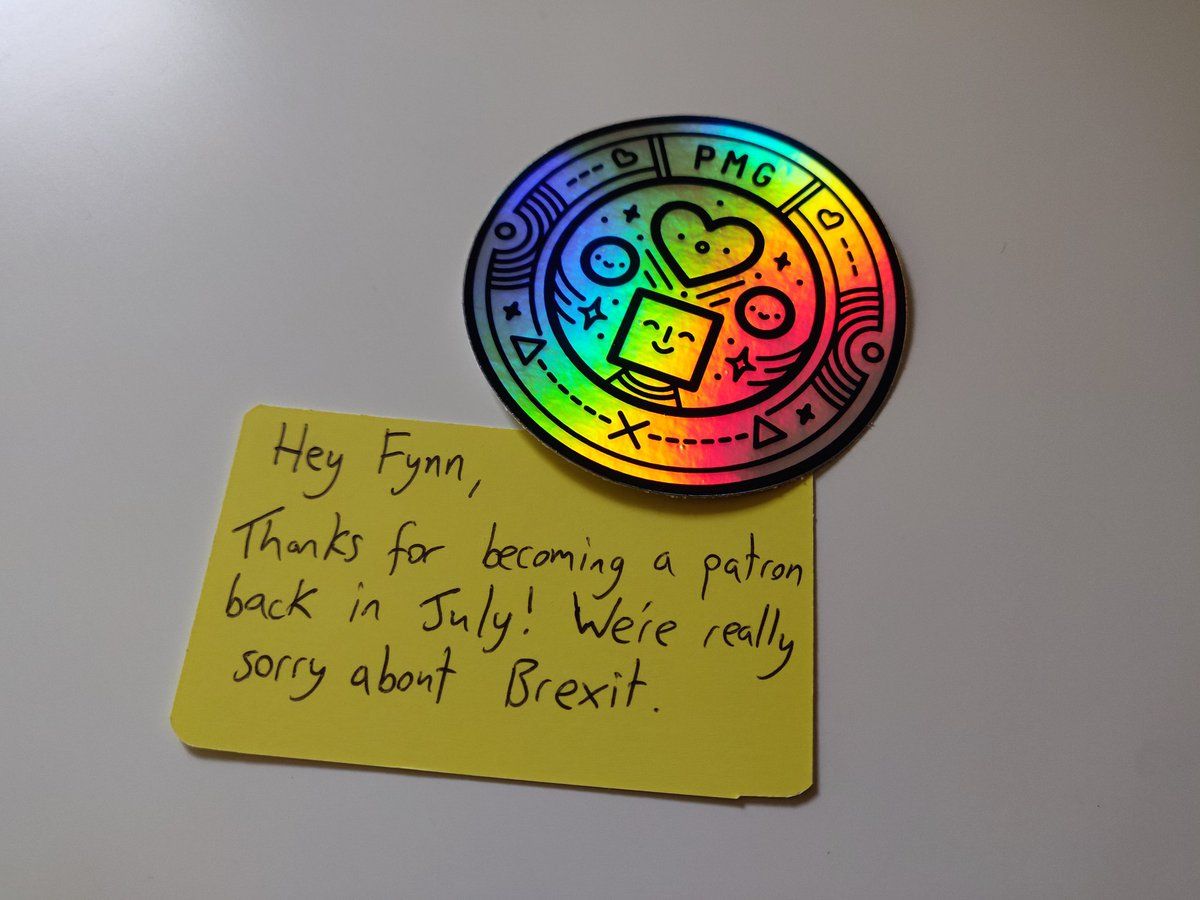 PMG
Hey Fynn,
Thanks for becoming a patron
back in July! We're really
sorry about Brexit.